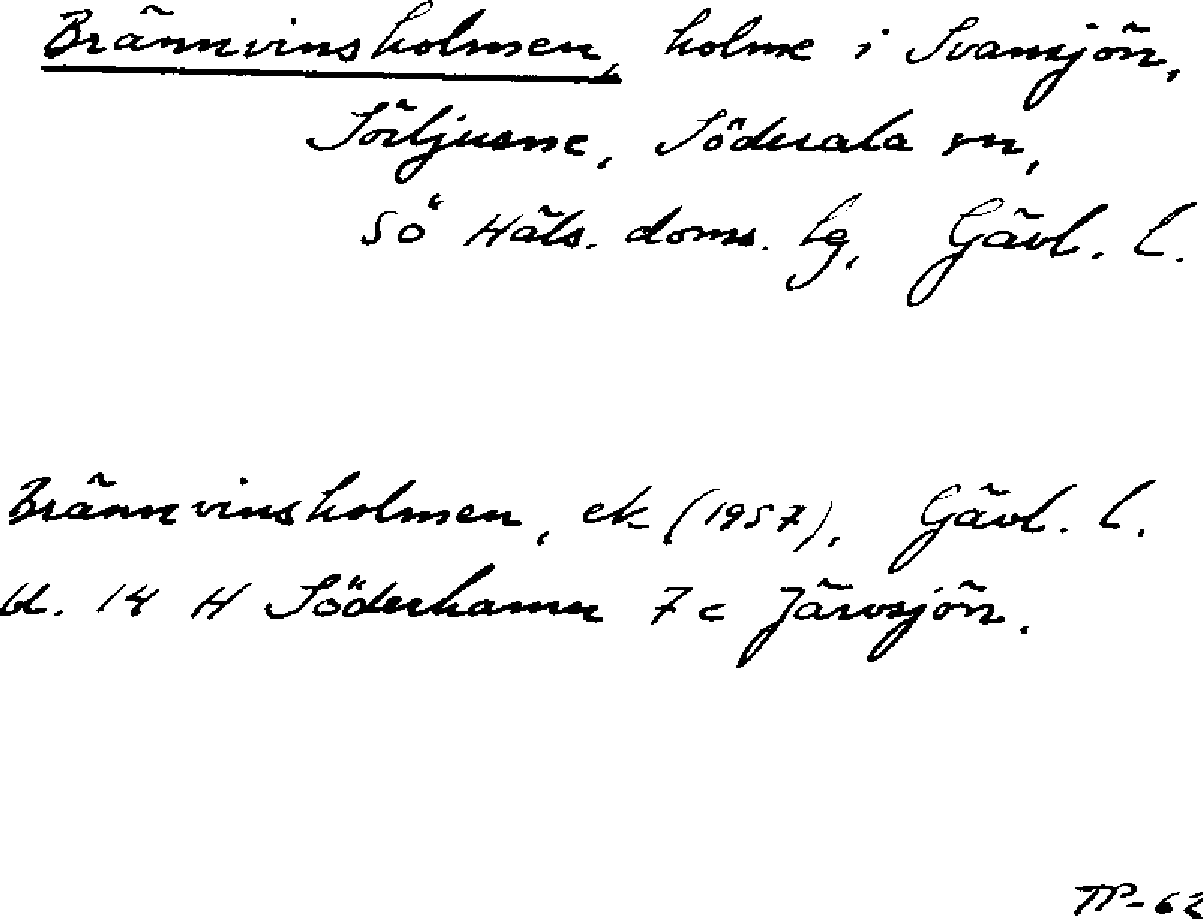 Brännvinsholmen, holme i Svansjön,
Sörljusne, Söderala sn,
Sö Häls. doms. lg, Gävl. l.
Brännvinsholmen, ek (1957), Gävl. l.
bl. 14 H Söderhamn 7 c Järvsjön.
TP-62